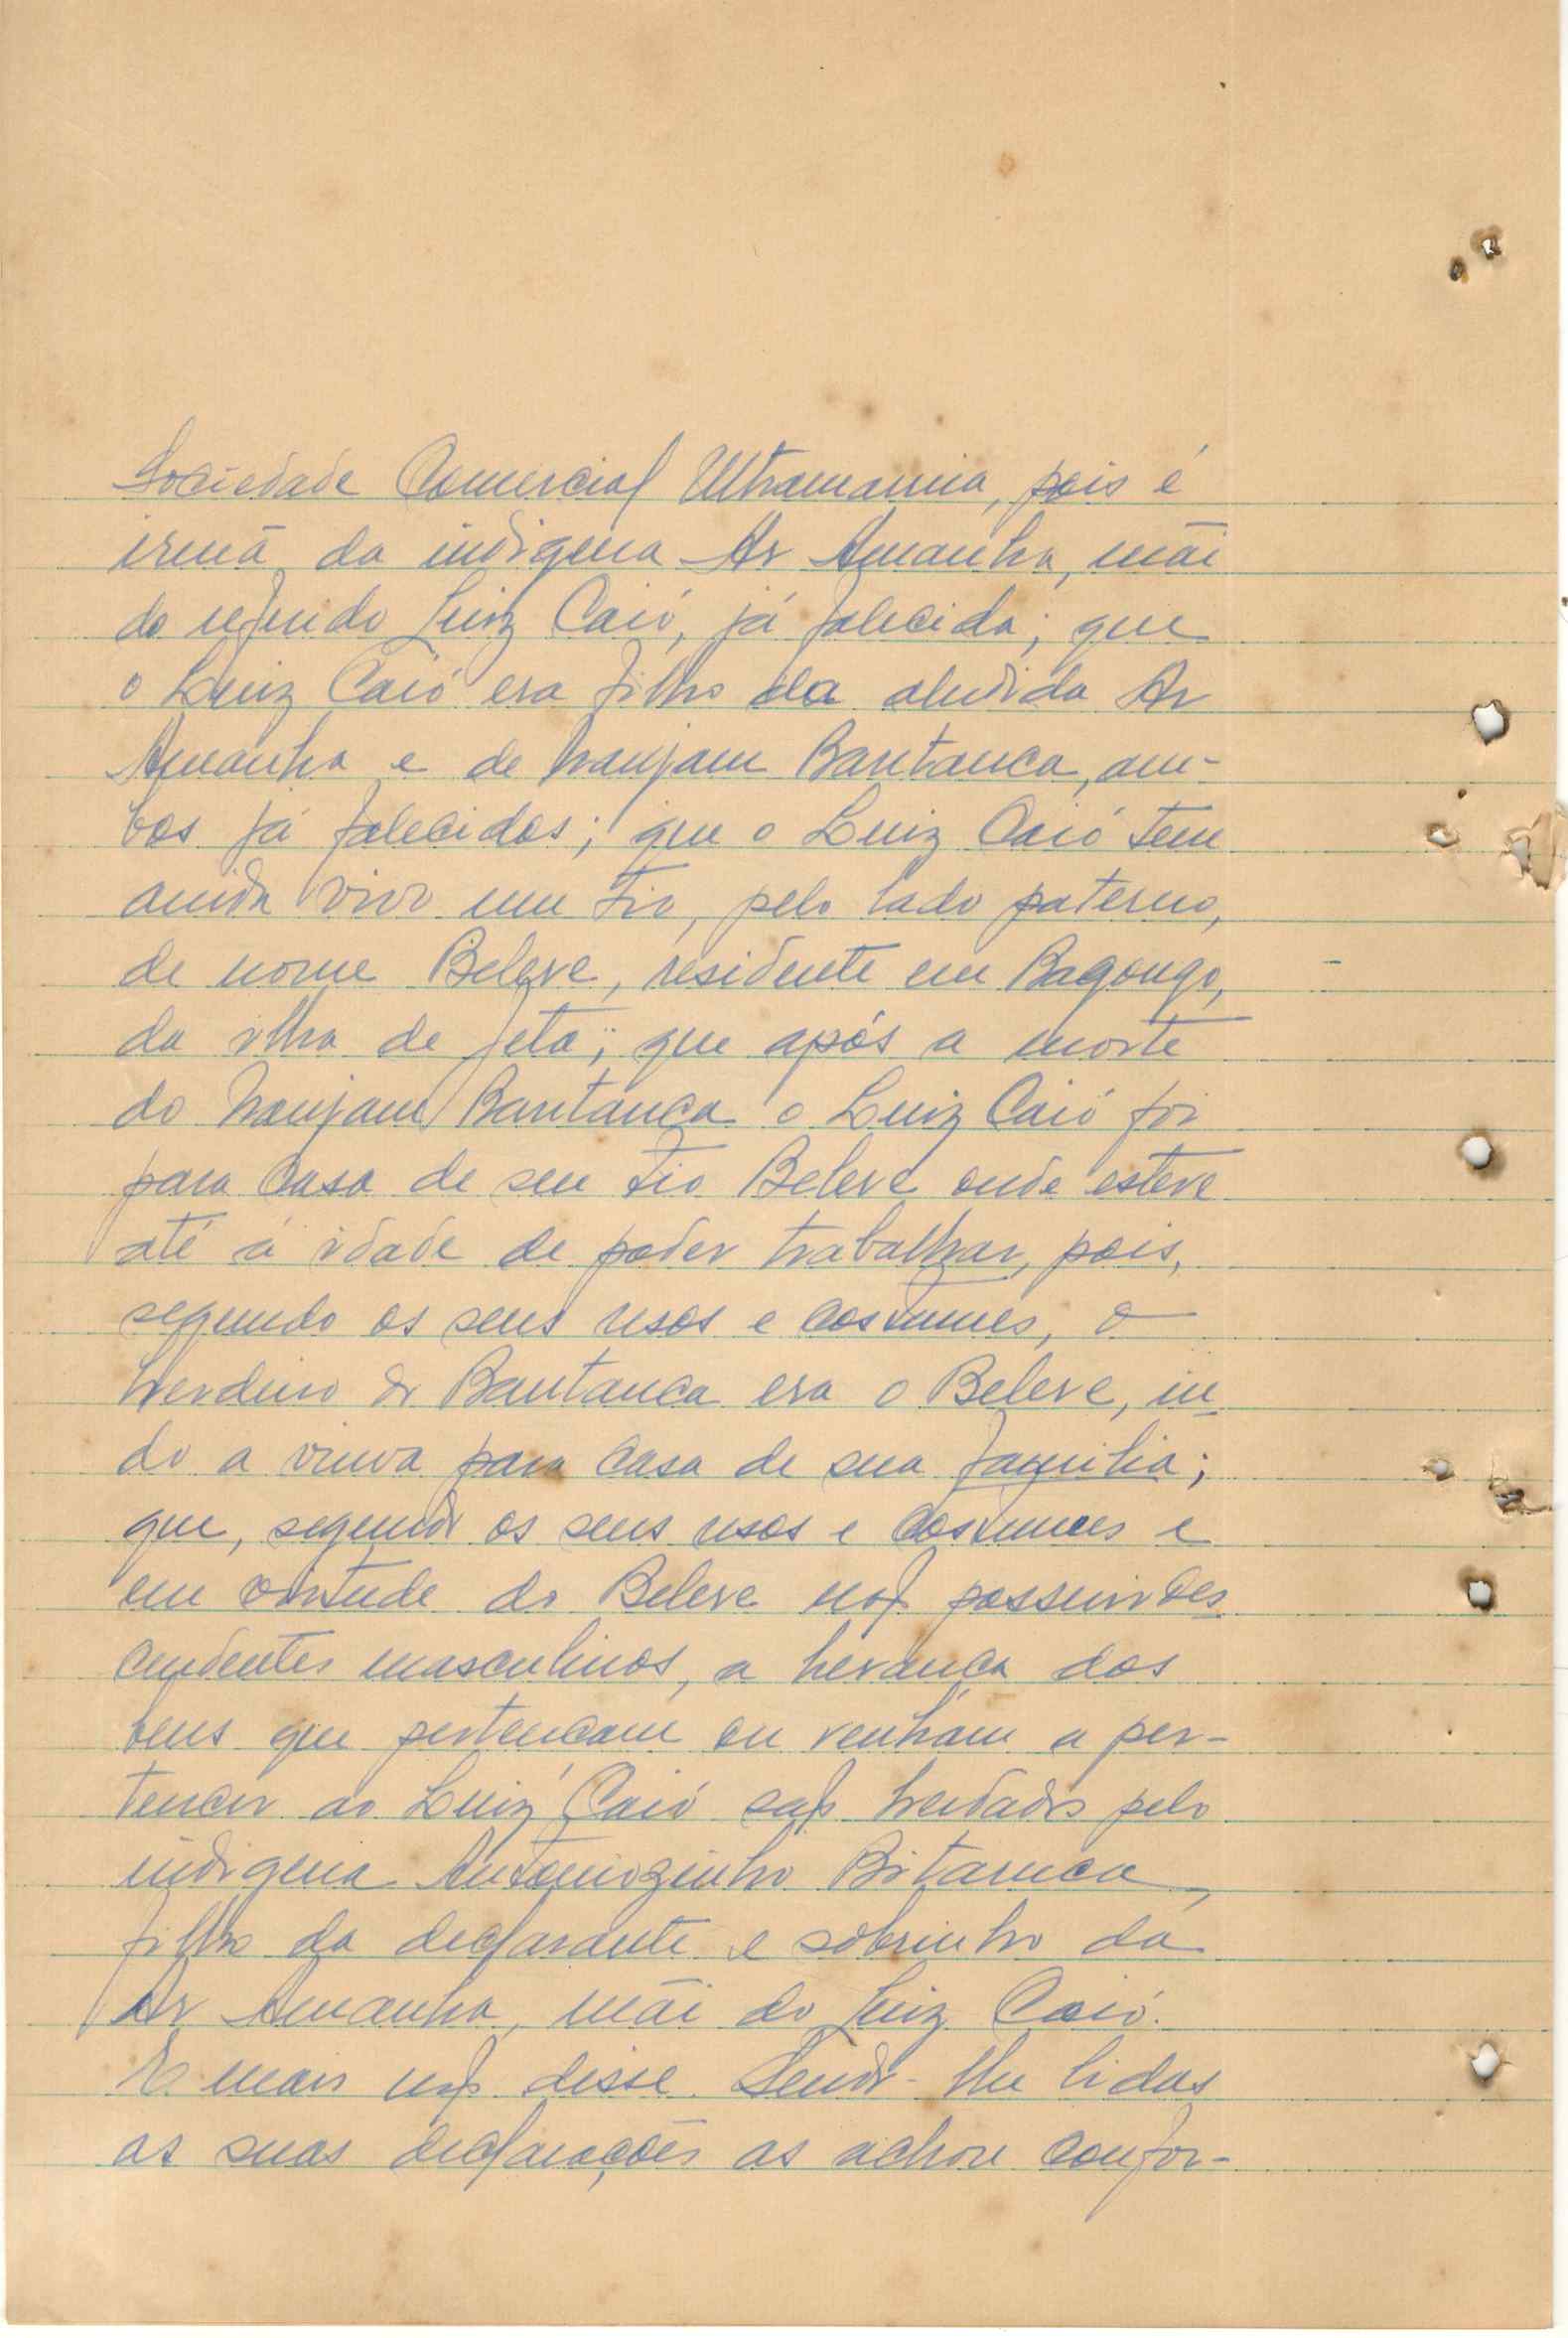 Sociedade Comercial Ultramarina, pois é
irmã da indigena Ar Amanha, mãi
do referido Luiz Caió, já falecida; que
o Luiz Caió era filho da aludida Ar
Amanha e de Nanjam Bantanca, am-
bos já falecidos; que o Luiz Caió tem
ainda vivo um tio, pelo lado paterno,
de nome Beleve, residente em Bagongo,
da ilha de Jeta; que após a morte
do Nanjam Bantanca o Luiz Caió foi
para casa de seu tio Beleve onde esteve
até á idade de poder trabalhar, pois,
segundo os seus usos e costumes, o
herdeiro do Bantanca era o Beleve, in-
do a viuva para casa de sua familia;
que, segundo os seus usos e costumes e
em virtude do Beleve não possuir des-
cendentes masculinos, a herança dos
bens que pertençam ou venham a per-
tencer ao Luiz Caió são herdados pelo
indigena Antoniozinho Bitanca,
filho da declarante e sobrinho da
Ar Amanha, mãi do Luiz Caió.
E mais não disse. Sendo-lhe lidas
as suas declarações as achou confor-